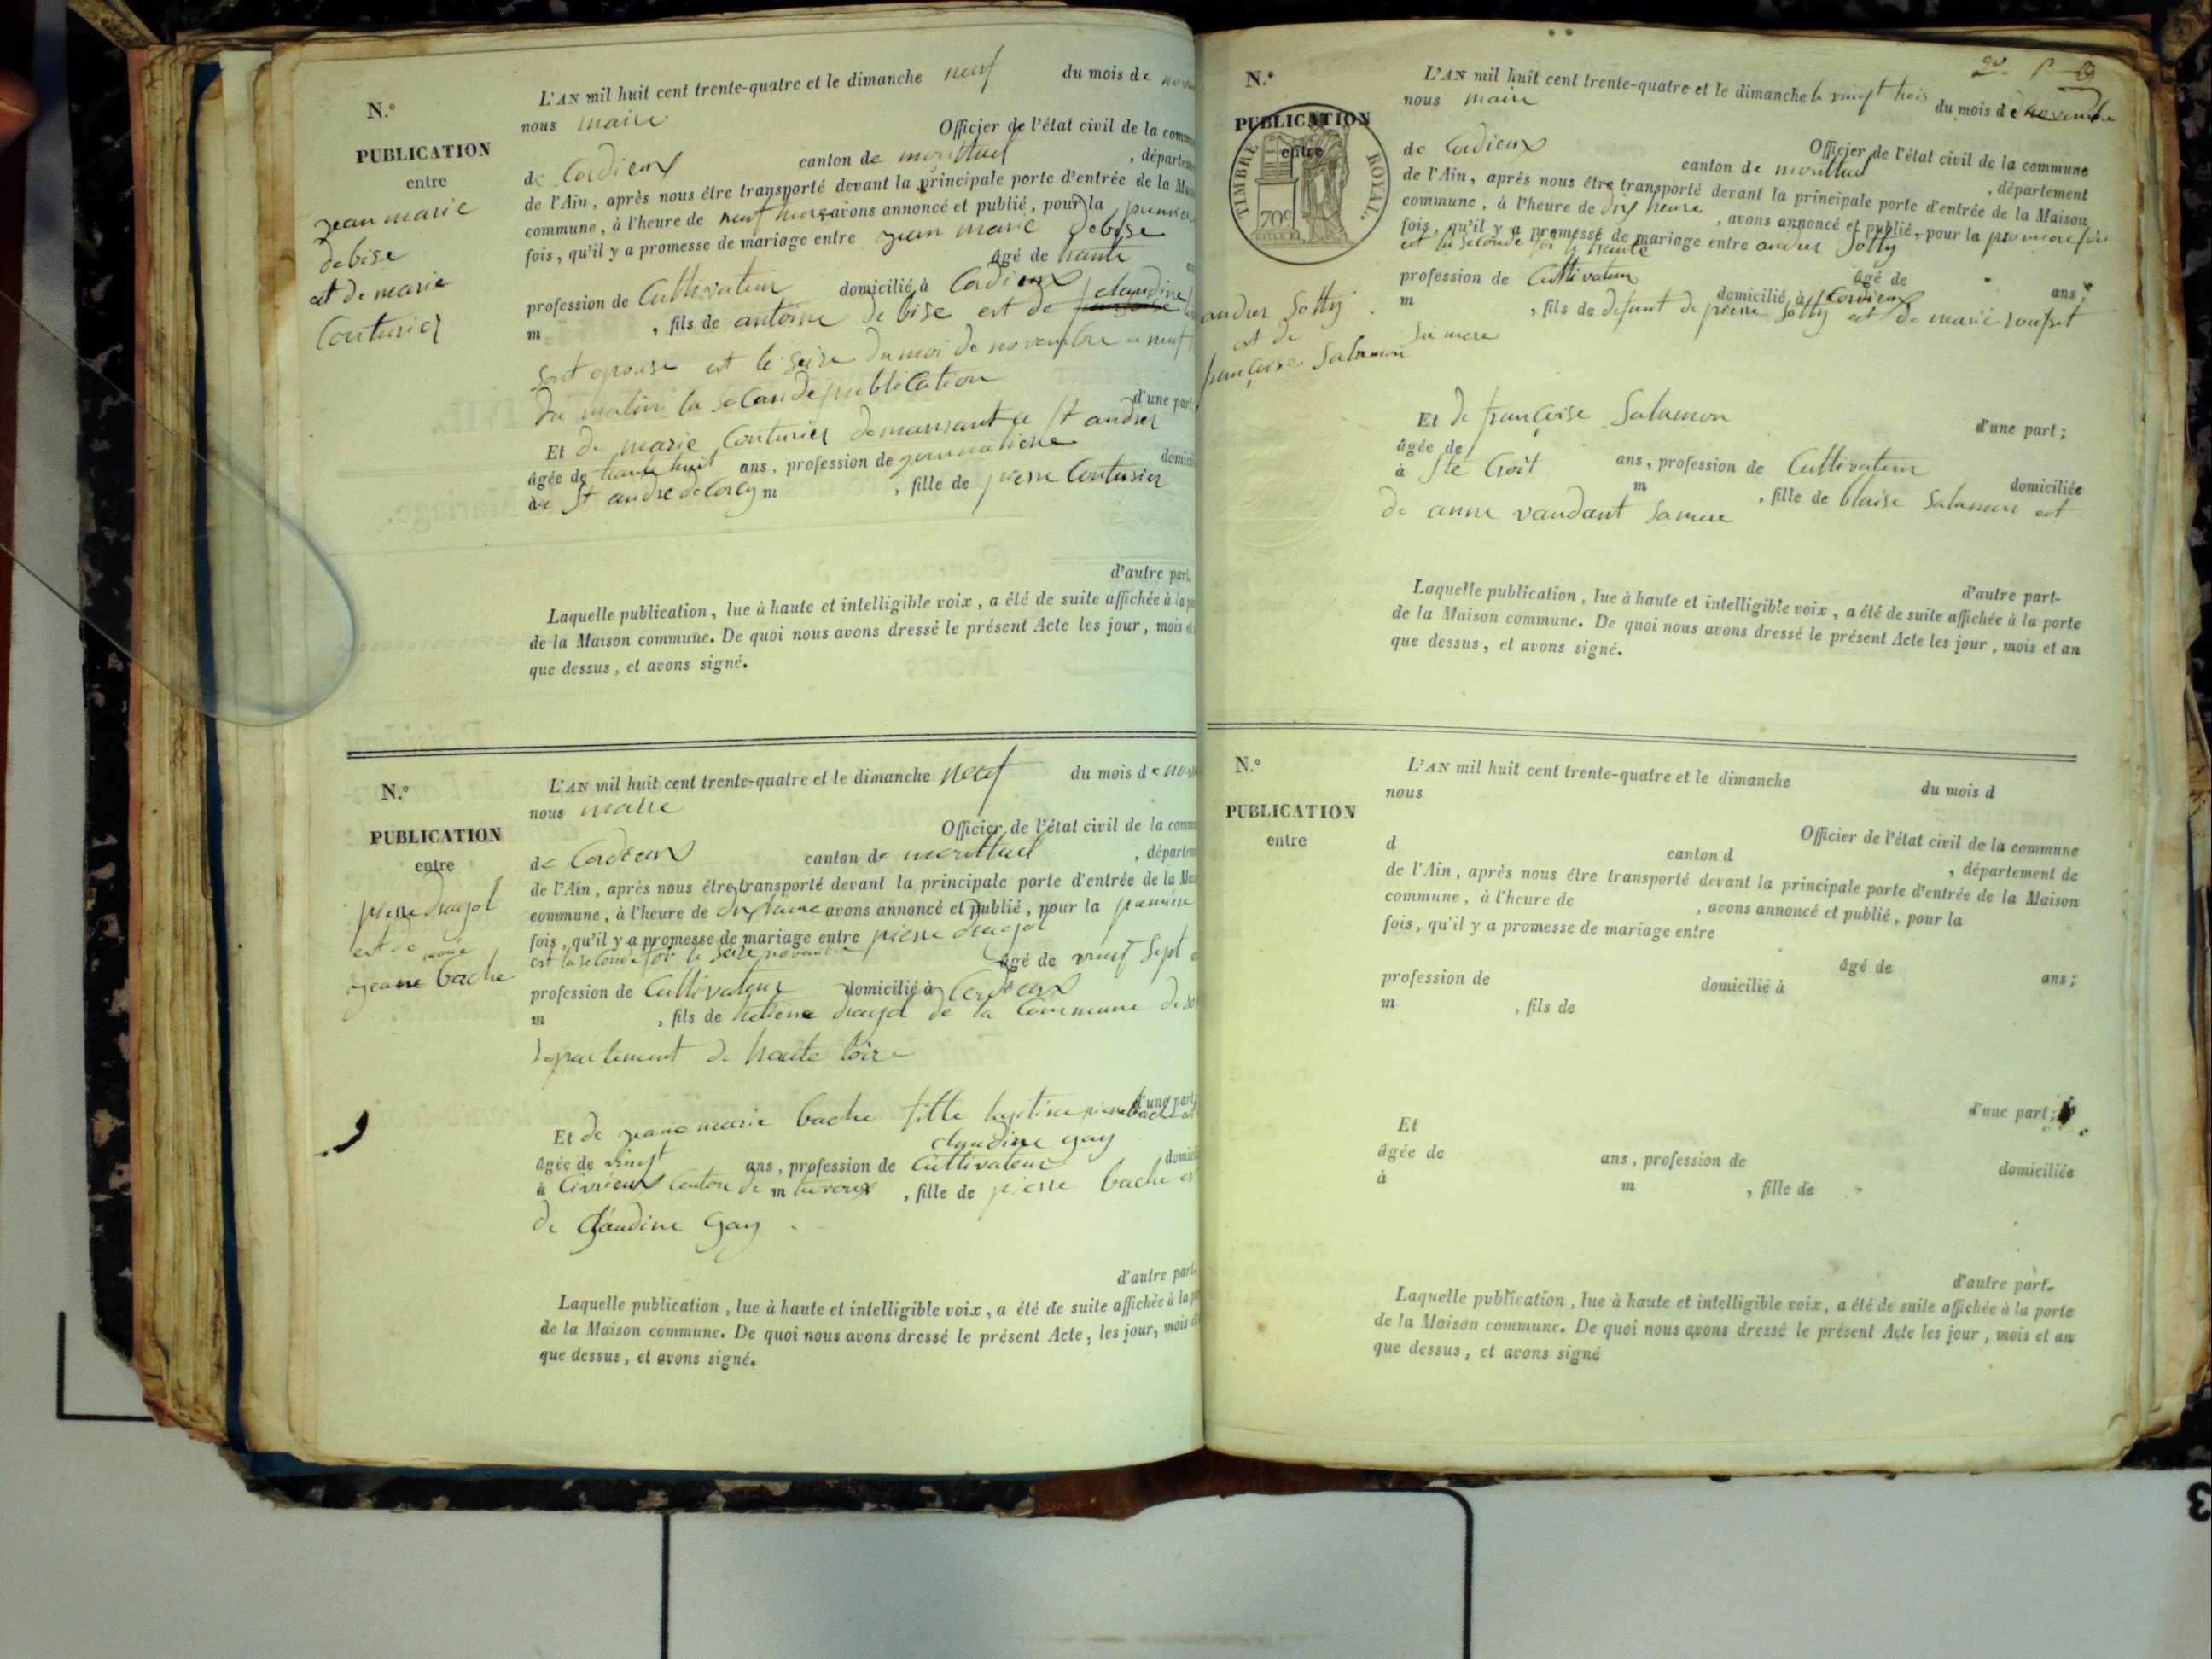 N.º
PUBLICATION
entre
jean marie
debise
et de marie
Couturier
L'AN mil huit cent trente-quatre et le dimanche neuf du mois de nov
nous maire
Officier de l'état civil de la comm
de Cordieux canton de montluel , départem
de l'Ain, après nous être transporté devant la principale porte d'entrée de la Mai
commune, à l'heure de neuf heures avons annoncé et publié, pour la premiere
fois, qu'il y a promesse de mariage entre jean marie debise
âgé de trante
profession de Cultivateur domicilié à Cordieux
m , fils de antoine debise est de claudine
sont epouse est le seize du moi de novembre a neuf
du matin la seconde publication
d'une part
Et de marie Couturier demeurant a St andrer
âgée de trante huit ans, profession de journaliere domici
de St andre de Corcy m , fille de pierre Couturier
d'autre part.
Laquelle publication, lue à haute et intelligible voix, a été de suite affichée à la p
de la Maison commune. De quoi nous avons dressé le présent Acte les jour, mois e
que dessus, et avons signé.
N.º
PUBLICATION
entre
pierre dragol
est de marie
jeanne bache
L'AN mil huit cent trente-quatre et le dimanche neuf du mois de nov
nous maire
Officier de l'état civil de la comm
de Cordieux canton de montluel , départem
de l'Ain, après nous être transporté devant la principale porte d'entrée de la Mai
commune, à l'heure de dix heure avons annoncé et publié, pour la premiere
fois, qu'il y a promesse de mariage entre pierre dragol
est la seconde foi le seize novembre
âgé de vingt sept
profession de Cultivateur domicilié à Cordieux
m , fils de dragol de la Commune de
departement de haute loire
d'une part
Et de jeane marie bache fille legitime pierre bache et
claudine gay
âgée de vingt ans, profession de Cultivateur domici
à Civrieux Canton de m trevoux , fille de pierre bache et
de Claudine Gay
d'autre part.
Laquelle publication, lue à haute et intelligible voix, a été de suite affichée à la p
de la Maison commune. De quoi nous avons dressé le présent Acte, les jour, mois e
que dessus, et avons signé.
N.º
PUBLICATION
entre
TIMBRE ROYAL.
70c
andrer Sotty
est de
françoise Salamon
L'AN mil huit cent trente-quatre et le dimanche le vingt trois du mois de novembre
nous maire
Officier de l'état civil de la commune
de Cordieux canton de montluel , département
de l'Ain, après nous être transporté devant la principale porte d'entrée de la Maison
commune, à l'heure de dix heure , avons annoncé et publié, pour la premiere foi
fois, qu'il y a promesse de mariage entre andrer Sotty
est la seconde foi le trante
âgé de ans;
profession de Cultivateur domicilié à Cordieux
m , fils de defunt de pierre Sotty est de marie
sa mere
d'une part;
Et de françoise Salamon
âgée de ans, profession de Cultivateur domiciliée
à Ste Croit m , fille de blaise Salamon est
de anne vaudant sa mere
d'autre part-
Laquelle publication, lue à haute et intelligible voix, a été de suite affichée à la porte
de la Maison commune. De quoi nous avons dressé le présent Acte les jour, mois et an
que dessus, et avons signé.
N.º
PUBLICATION
entre
L'AN mil huit cent trente-quatre et le dimanche du mois d
nous
Officier de l'état civil de la commune
d canton d , département de
de l'Ain, après nous être transporté devant la principale porte d'entrée de la Maison
commune, à l'heure de , avons annoncé et publié, pour la
fois, qu'il y a promesse de mariage entre
âgé de ans;
profession de domicilié à
m , fils de
d'une part;
Et
âgée de ans, profession de domiciliée
à m , fille de
d'autre part.
Laquelle publication, lue à haute et intelligible voix, a été de suite affichée à la porte
de la Maison commune. De quoi nous avons dressé le présent Acte les jour, mois et an
que dessus, et avons signé
3